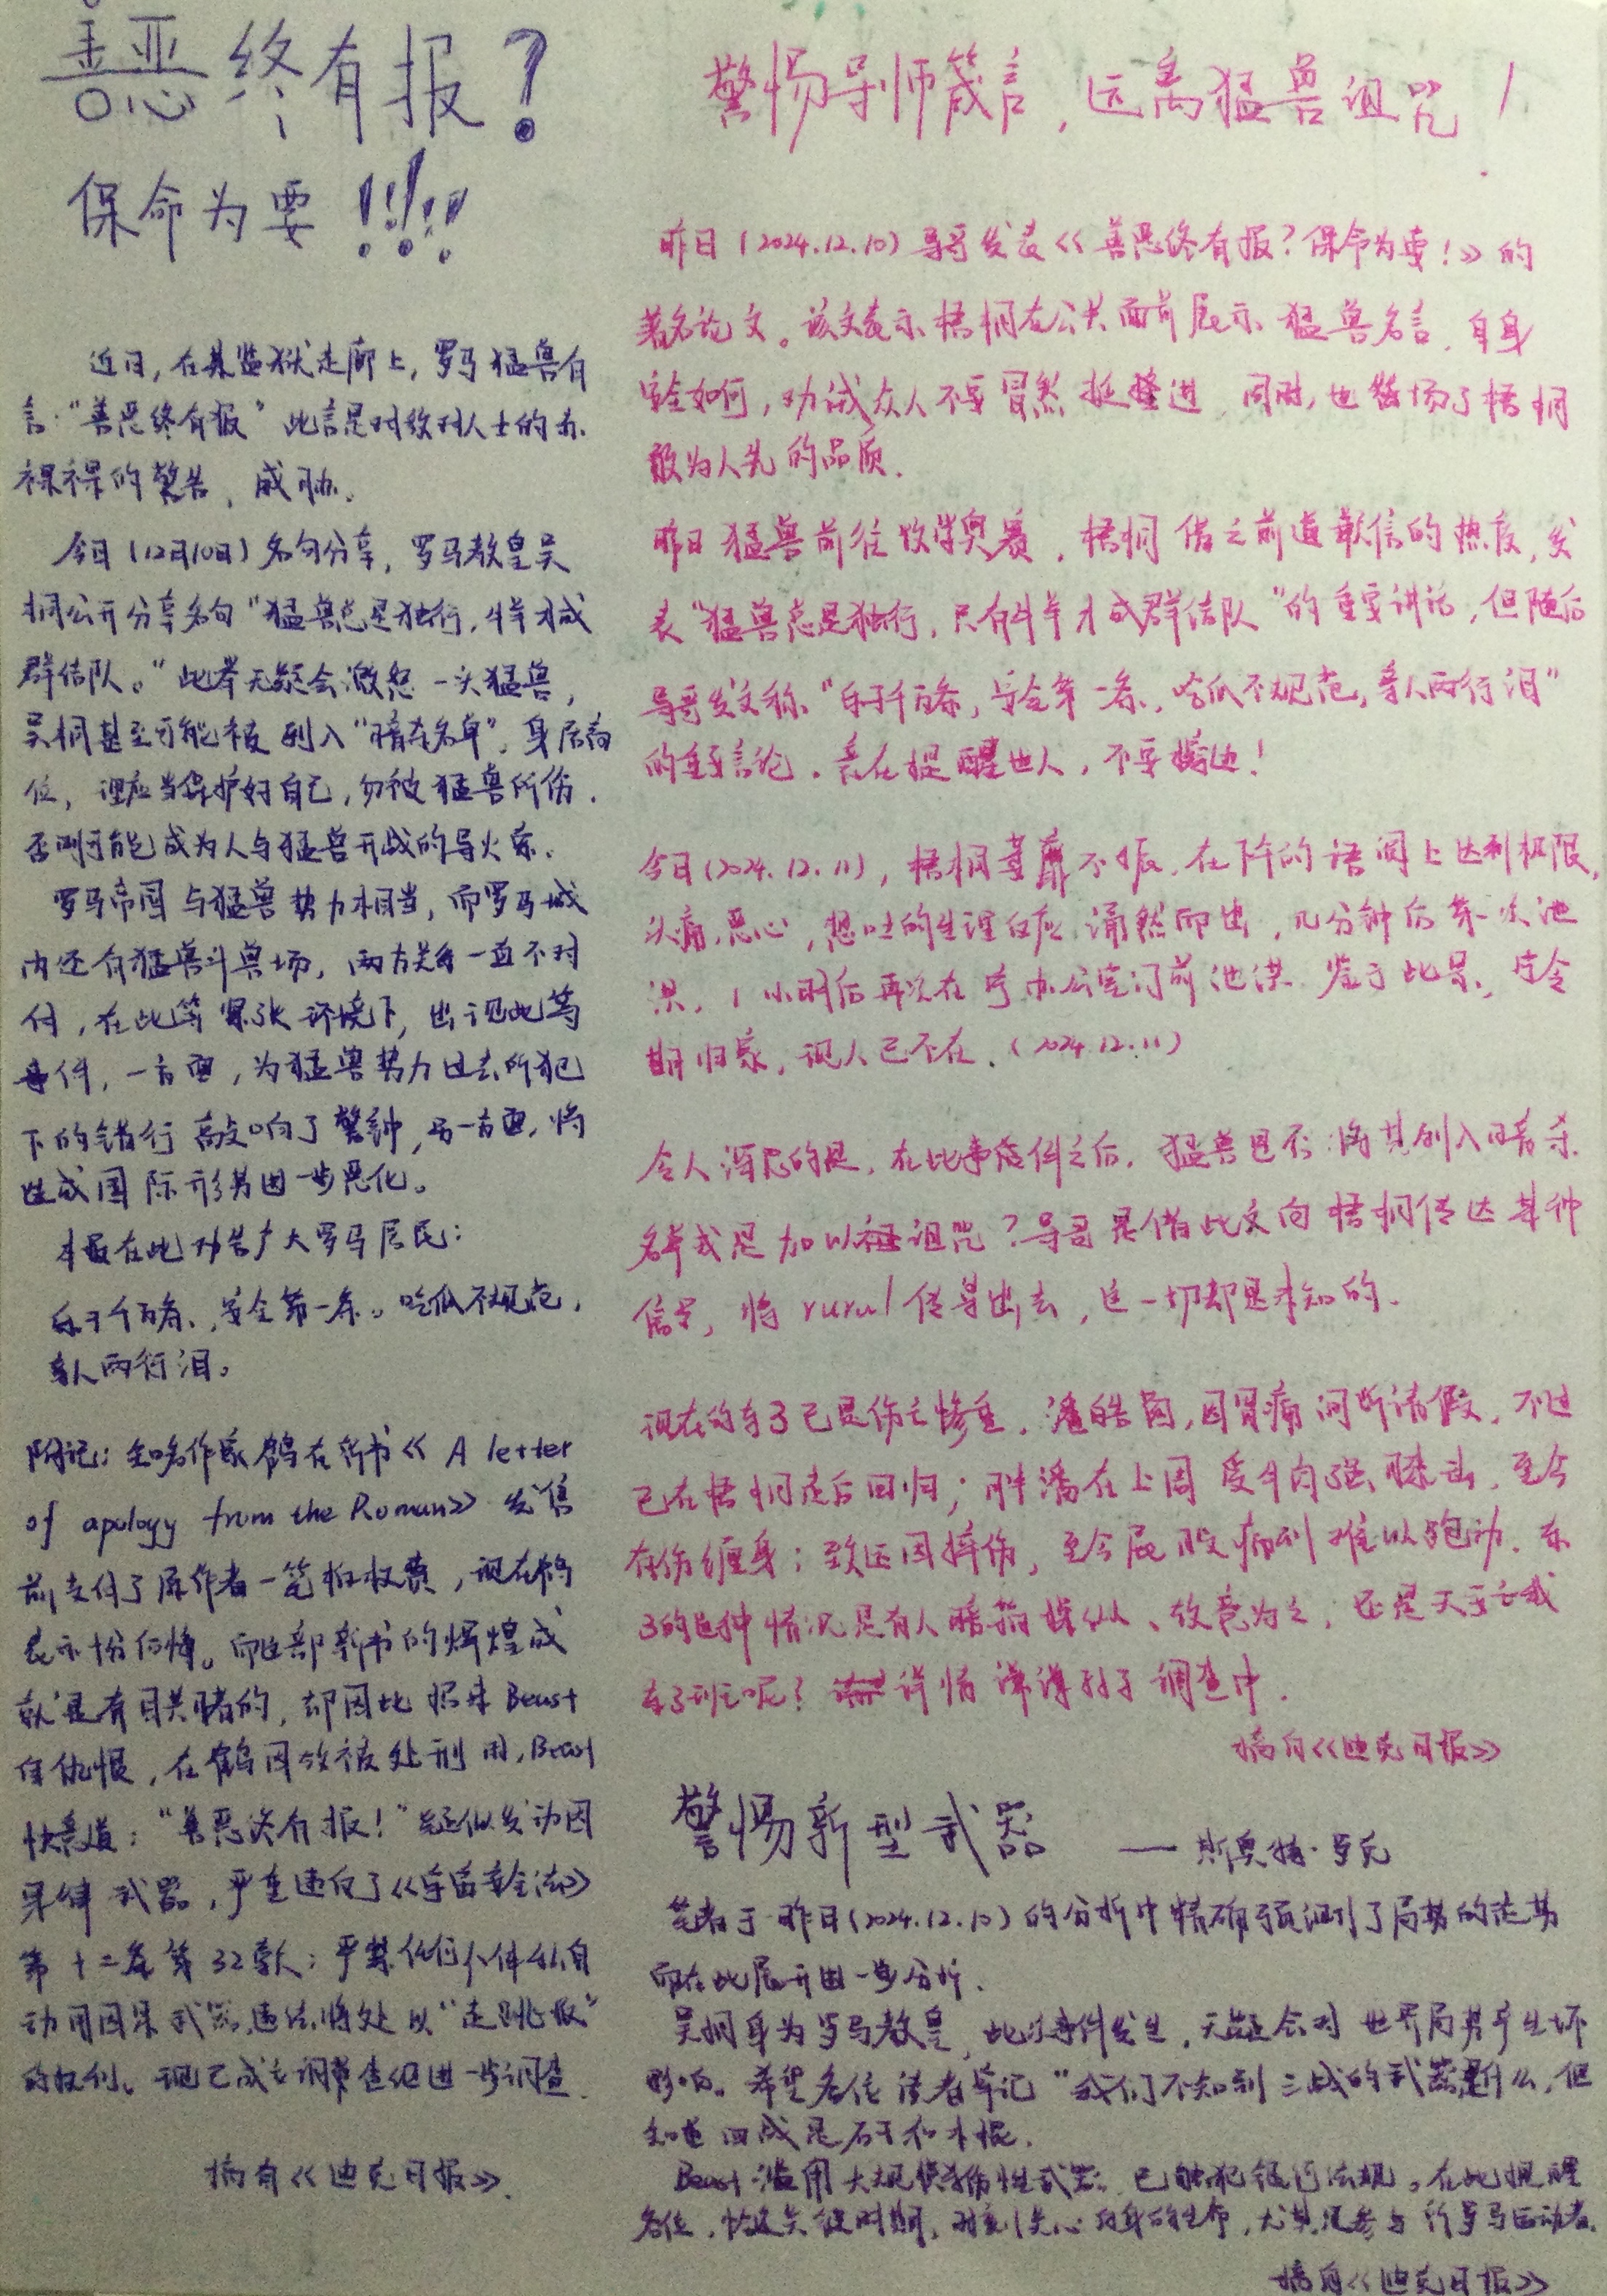 善恶终有报?
保命为要!!!!
近日,在某监狱走廊上,罗马猛兽自
言:“善恶终有报”此言是对敌对人士的赤
裸裸的警告、威胁。
今日(12月10日)名句分享,罗马教皇吴
桐公开分享名句“猛兽总是独行,牛羊才成
群结队。”此举无疑会激怒一头猛兽,
吴桐甚至可能被列入“暗杀名单”,身居高
位,理应当保护好自己,勿被猛兽所伤.
否则可能成为人与猛兽开战的导火索.
罗马帝国与猛兽势力相当,而罗马城
内还有猛兽斗兽场,两方关系一直不对
付,在此等紧张环境下,出现此等
事件,一方面,为猛兽势力过去所犯
下的错行敲响了警钟,另一方面,将
造成国际形势进一步恶化。
本报在此劝告广大罗马居民:
乐子千万条,安全第一条。吃瓜不规范,
亲人两行泪。
附记:知名作家鹤在新书《A letter
of apology from the Roman》发售
前支付了原作者一笔版权费,现在鹤
表示十分后悔。而这部新书的辉煌成
就是有目共睹的,却因此招来Beast
的仇恨,在鹤因故被处刑时,Beast
快意道:“善恶终有报!”疑似发动因
果律武器,严重违反了《宇宙安全法》
第十二条第32款:严禁任何个体私自
动用因果武器,违法将处以“走跳板”
的权利。现已成立调查组进一步调查.
摘自《迪克日报》.
警惕导师箴言,远离猛兽诅咒!
昨日(2024.12.10)导哥发表《善恶终有报?保命为要!》的
著名论文。该文表示梧桐在公共面前展示猛兽名言,自身
安全如何,劝诫众人不要冒然挺进 同时,也赞扬了梧桐
敢为人先的品质.
昨日猛兽前往牧学奥赛,梧桐借之前道歉信的热度,发
表“猛兽总是独行,只有牛羊才成群结队”的重要讲话,但随后
导哥发文称“乐子千万条,安全第一条,吃瓜不规范,亲人两行泪”
的重要言论.意在提醒世人,不要越边!
今日(2024.12.11),梧桐萎靡不振,在下午的语间上达到极限,
头痛,恶心,想吐的生理反应涌然而出,几分钟后第一次池
洪,1小时后再次在 办公室门前池洪 鉴于此景,
归家,现人已不在.(2024.12.11)
令人深思的是,在此事件之后,猛兽是否将其列入暗杀
名单或是加以诅咒?导哥是借此文向梧桐传达某种
信号,将rural传导出去,这一切都是未知的.
现在的车3已是伤亡惨重,潘皓 ,因胃痛间断请假,不过
已在梧桐走后回归;胖潘在上周受牛肉 袭击,至今
在伤缠身;致远因摔伤,至今屁股痛到难以跑动.车
3的这种情况是有人暗箱操纵、故意为之,还是天要亡我
车3班呢?详情 于调查中.
摘自《迪克日报》
警惕新型武器 ——斯奥特·罗克
笔者于昨日(2024.12.10)的分析中精确预测了局势的走势
而在此展开进一步分析.
吴桐身为罗马教皇,此次事件发生,无疑会对世界局势产生坏
影响。希望各位读者牢记“我们不知到三战的武器是什么,但
知道四战是石子和木棍.
Beast滥用大规模杀伤性武器,已触犯银河法规。在此提醒
各位,恰逢关键时期,时刻关心自身的生命,尤其是参与 罗马运动者.
摘自《迪克日报》